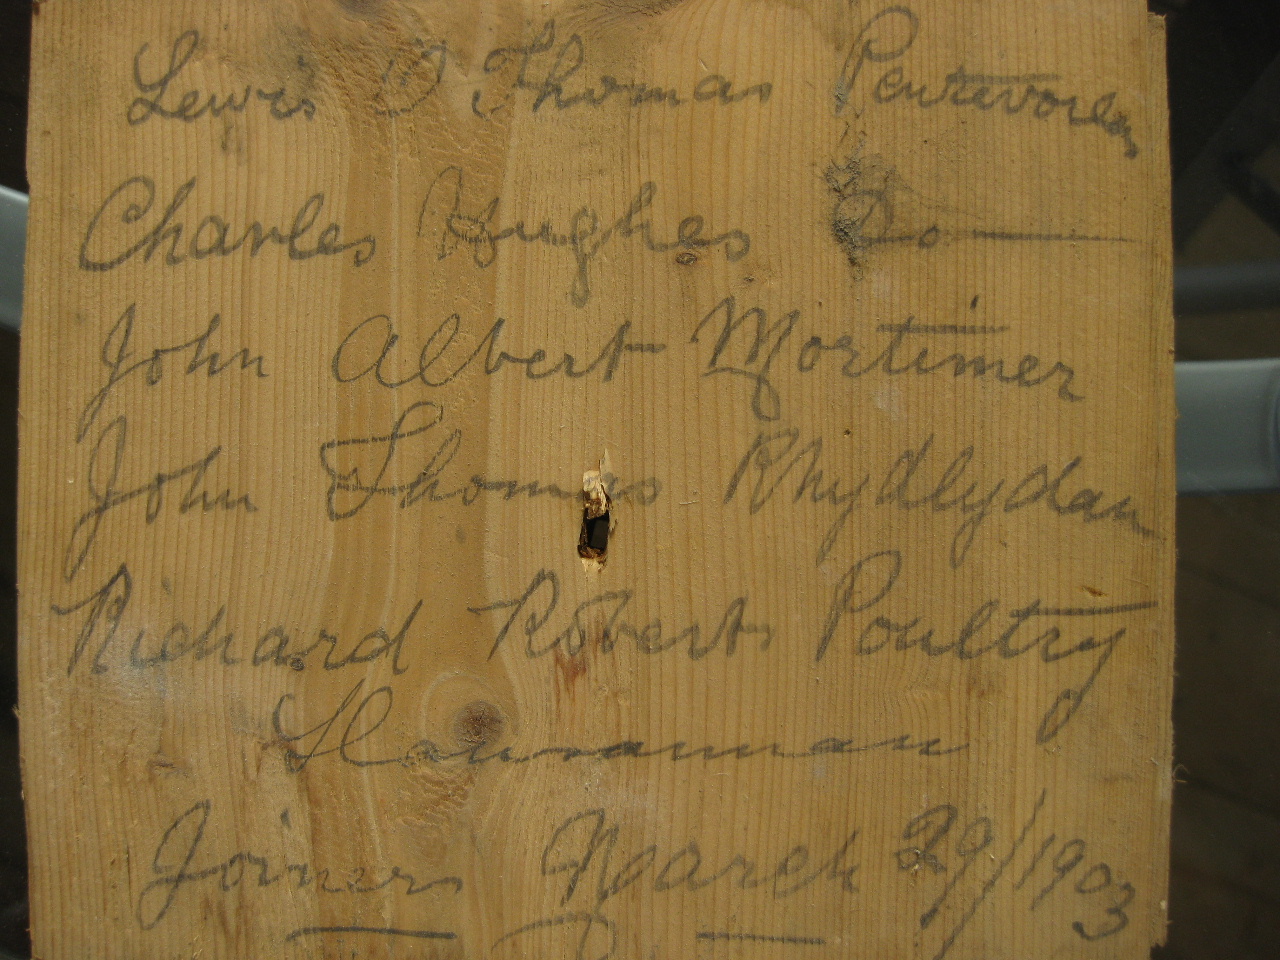 Lewis D Thomas Pentrevoelas
Charles Hughes Do
John Albert Mortimer
John Thomas Rhydlydan
Richard Roberts Poultry
Joiners March 29/1903